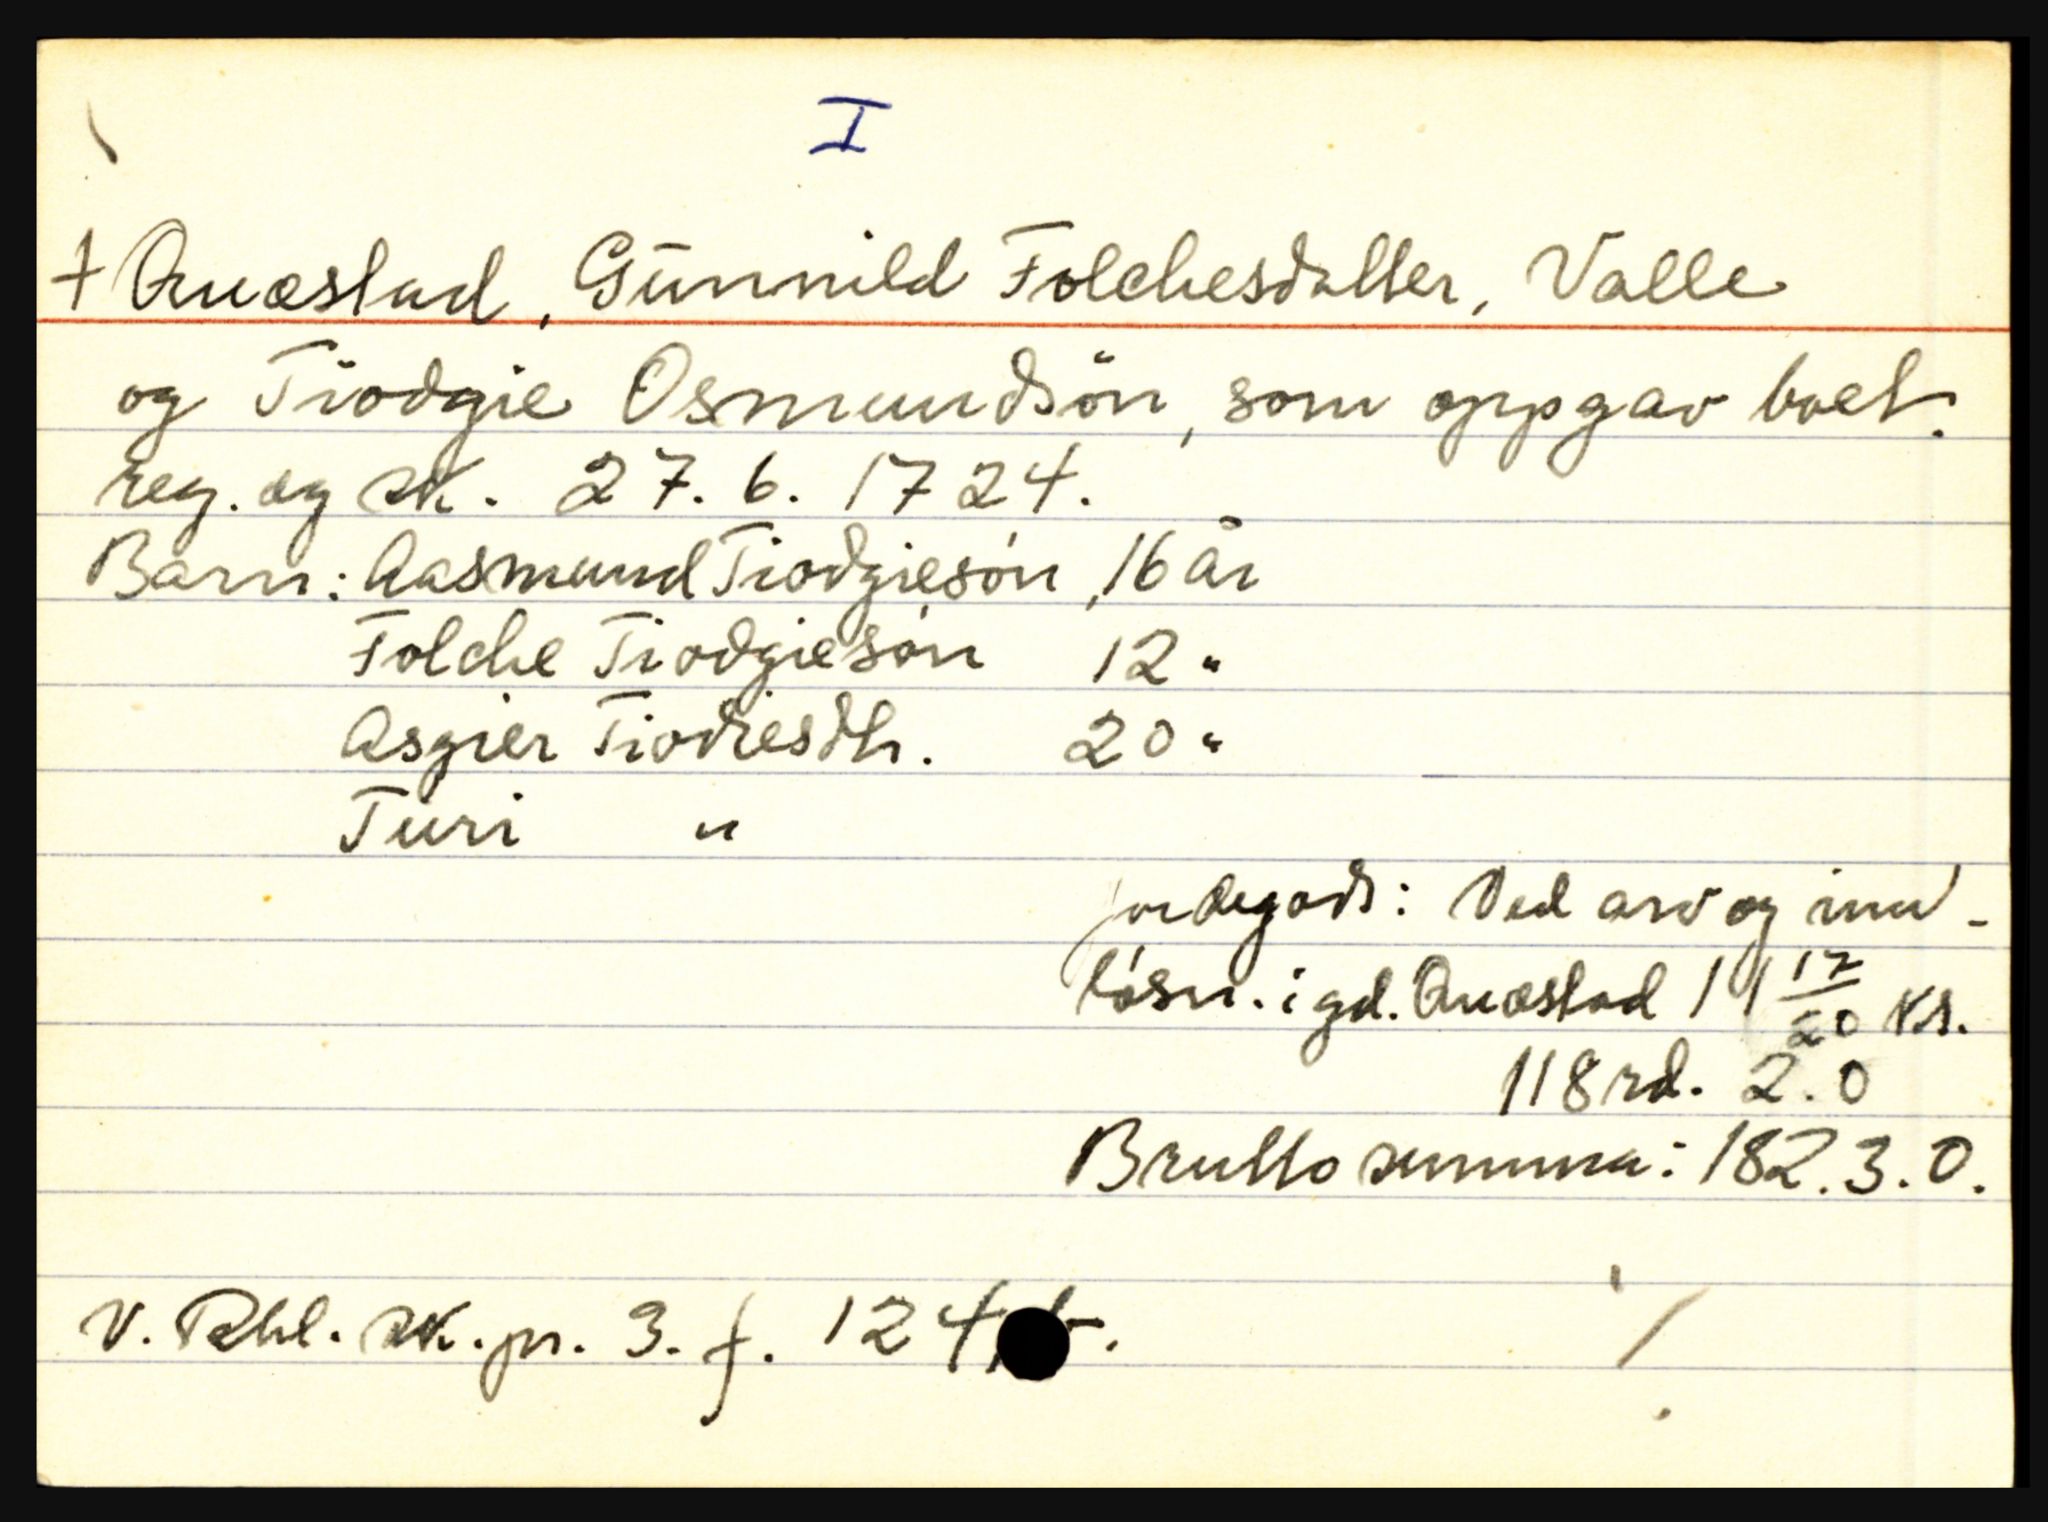 I
+ Quæstad, Gunnild Folchesdatter, Valle
og Tiodgie Osmundsön, som oppgav boet.
reg. og sk. 27. 6. 1724.
Barn: Aasmund Tiodgiesön, 16 år
Folche Tiodgiesön 12 "
Asgier Tiodiesdtr. 20 "
Turi "
jordegods: Ved arv og ind-
løsn. i gd. Quæstad 11 17/20 ks.
118 rd. 2. 0
Brutto summa: 182. 3. 0.
V. Rbl. sk. pr. 3. f. 124
./.